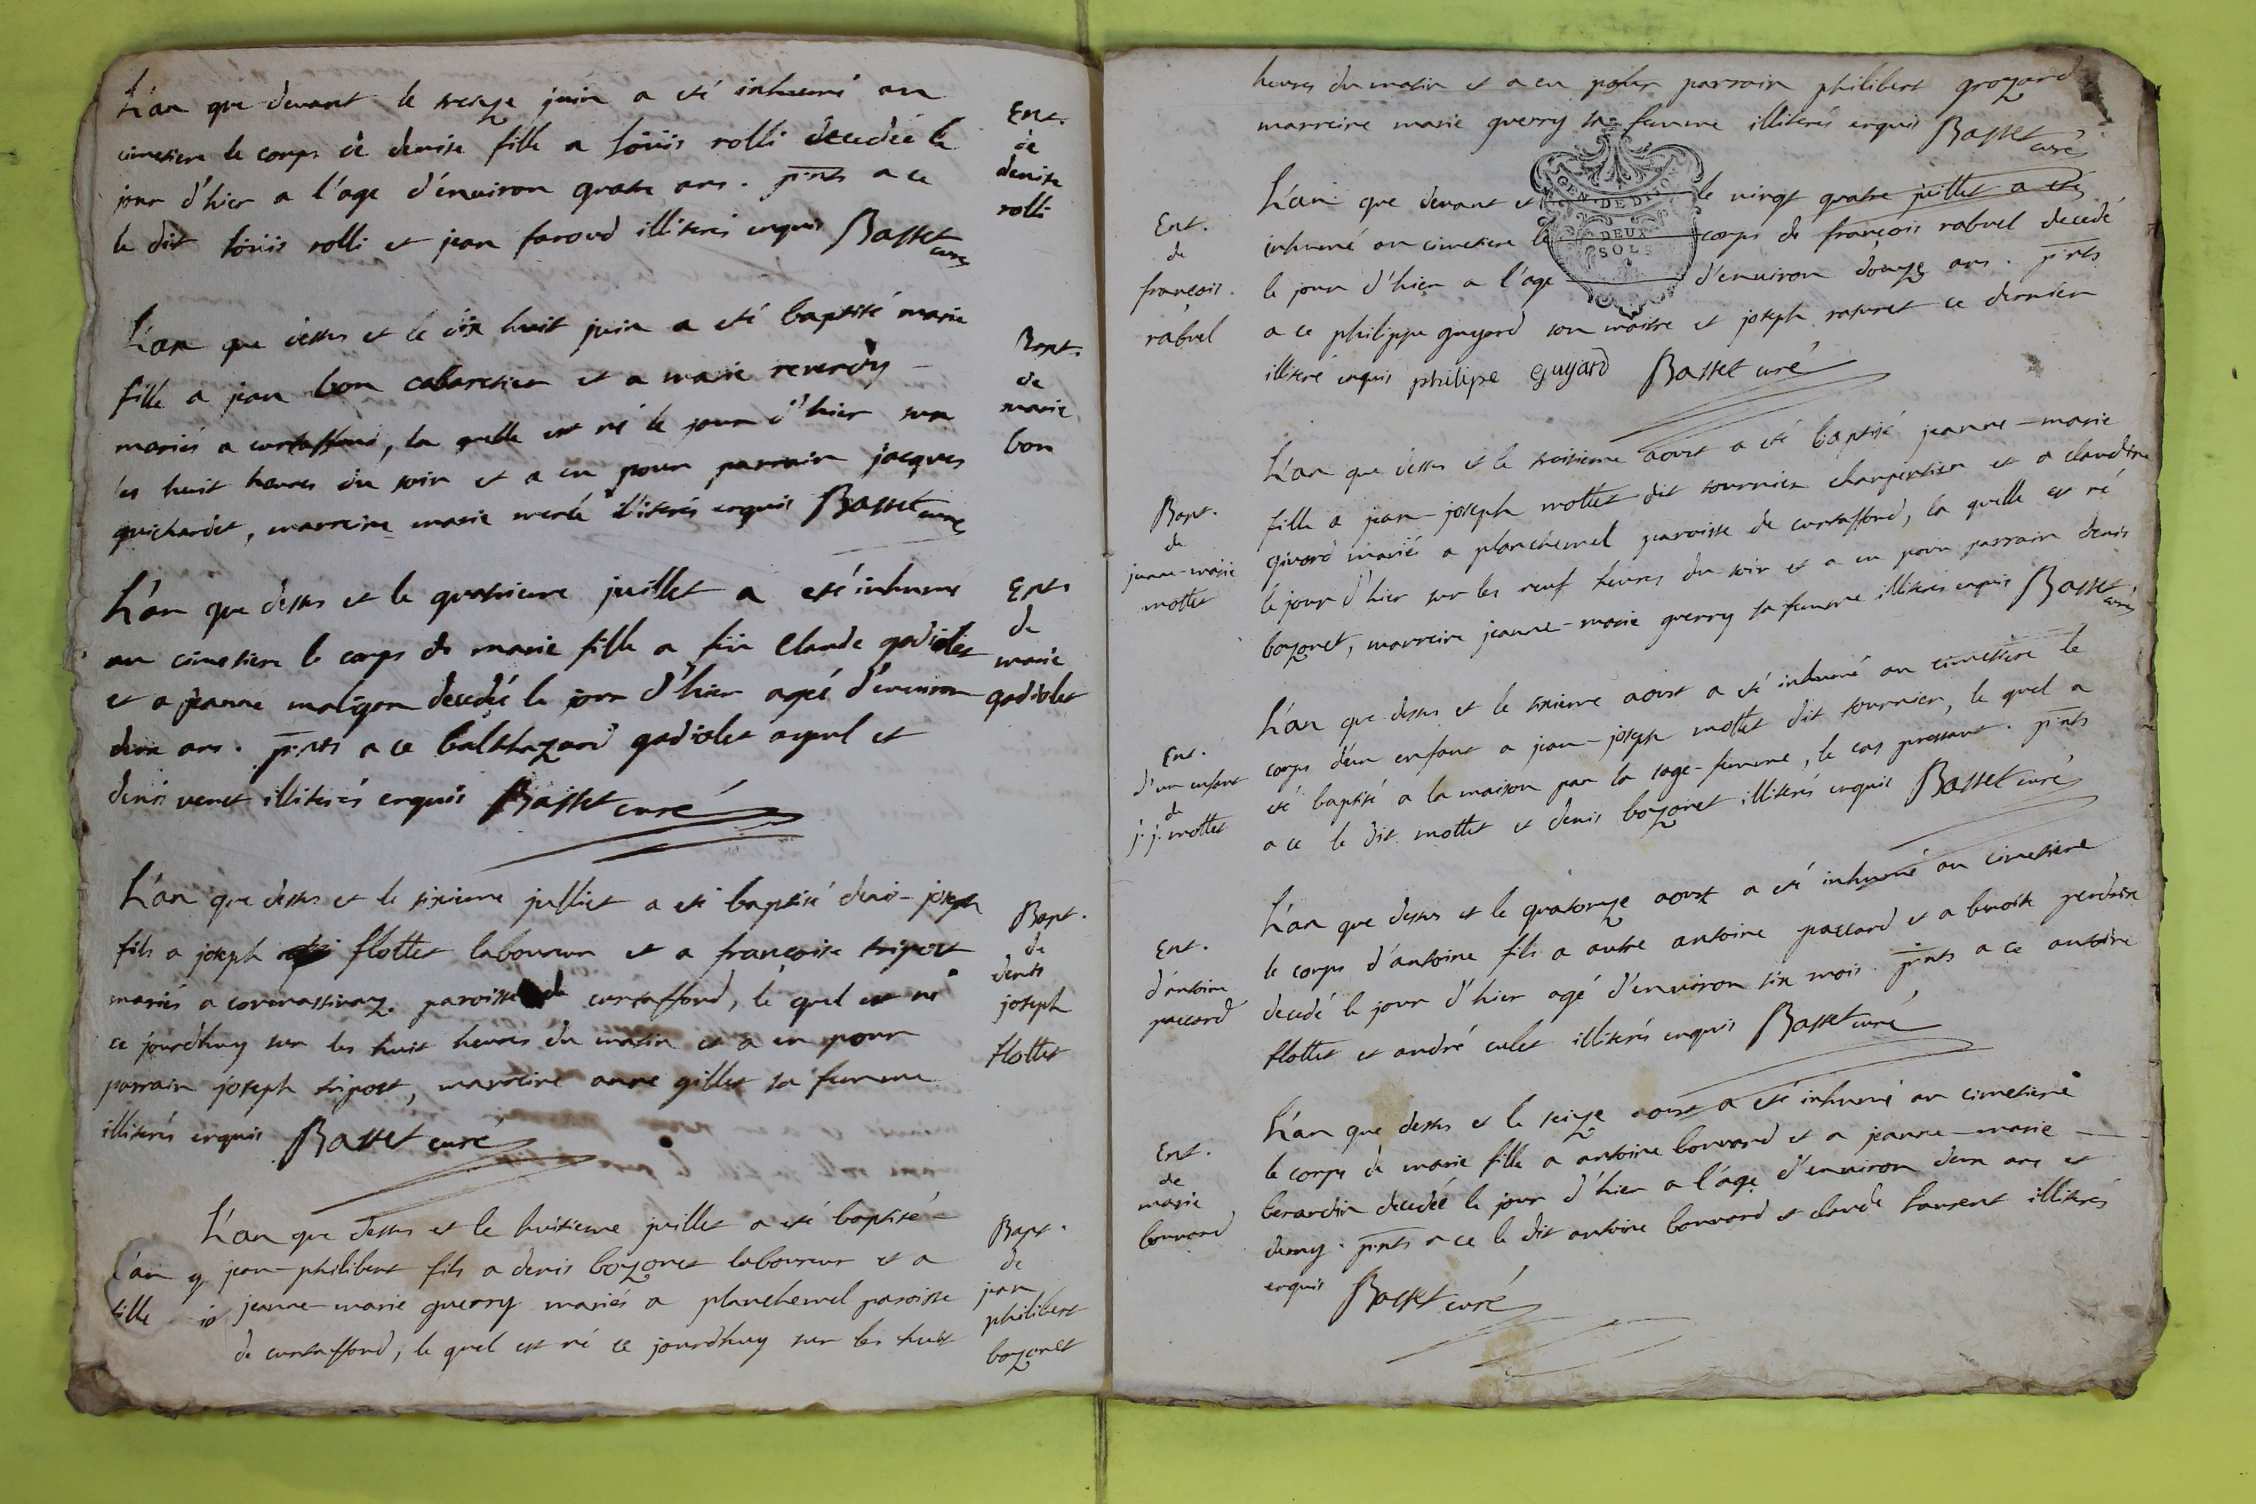 L'an que devant le treize juin a eté inhumé au
cimetiere le corps de denise fille a loüis rolli decedée le
jour d'hier a l'age d'environ quatre ans. p̅r̅nts a ce
le dit loüis rolli et jean faroud illiterés enquis Basset curé
Ent.
de
denise
rolli
L'an que dessus et le dix huit juin a eté baptisé marie
fille a jean bon cabaretier et a marie reverdy
mariés a curtaffond, la quelle est né le jour d'hier sur
les huit heures du soir et a eu pour parrain jacques
guichardet, marreine marie merle illiterés enquis Basset curé
Bapt.
de
marie
bon
L'an que dessus et le quatrieme juillet a eté inhumé
au cimetiere le corps de marie fille a feu Claude gadiolet
et a jeanne maligon decedée le jour d'hier agée d'environ
deux ans. p̅r̅nts a ce balthazard gadiolet ayeul et
denis venet illiterés enquis Basset curé
Ent.
de
marie
gadiolet
L'an que dessus et le sixieme julliet a eté baptisé denis-joseph
fils a joseph flottet laboureur et a françoise tripoz
mariés a cormassinaz paroisse de curtaffond, le quel est né
ce jourdhuy sur les huit heures du matin et a eu pour
parrain joseph tripost, marreine anne gillet sa femme
illiterés enquis Basset curé
Bapt.
de
denis
joseph
flottet
L'an que dessus et le huitieme juillet a eté baptisé
jean-philibert fils a denis bozonet laboureur et a
jeanne-marie guerry mariés a planchemel paroisse
de curtaffond, le quel est né ce jourdhuy sur les huit
L'an q
fille
Bapt.
de
jean
philibert
bozonet
heures du matin et a eu pour parrain philibert grozard
marreine marie guerry sa femme illiterés enquis Basset curé
GEN. DE DIJON
DEUX
SOLS
L'an que devant et le vingt quatre juillet a eté
inhumé au cimetiere le corps de françois rabuel decedé
le jour d'hier a l'age d'environ douze ans. p̅r̅nts
a ce philippe guyard son maitre et joseph raturet ce dernier
illiteré enquis philipe guyard Basset curé
Ent.
de
françois
rabuel
L'an que dessus et le troisieme aoust a eté baptisé jeanne-marie
fille a jean-joseph mottet dit tournier charpentier et a claudine
givord mariés a planchemel paroisse de curtaffond, la quelle est né
le jour d'hier sur les neuf heures du soir et a eu pour parrain denis
bozonet, marreine jeanne-marie guerry sa femme illiterés enquis Basset curé
Bapt.
de
jeanne-marie
mottet
L'an que dessus et le sixieme aoust a eté inhumé au cimettiere le
corps d'un enfant a jean-joseph mottet dit tournier, le quel a
eté baptisé a la maison par la sage-femme, le cas pressant. p̅r̅nts
a ce le dit mottet et denis bozonet illiterés enquis Basset curé
Ent.
d'un enfant
de
j. j. mottet
L'an que dessus et le quatorze aoust a eté inhumé au cimetiere
le corps d'antoine fils a autre antoine paccard et a benoite perdrix
decedé le jour d'hier agé d'environ six mois. p̅r̅nts a ce antoine
flottet et andré culet illiterés enquis Basset curé
Ent.
d'antoine
paccard
L'an que dessus et le seize aoust a eté inhumé au cimetiere
le corps de marie fille a antoine bonvard et a jeanne-marie
berardin decedée le jour d'hier a l'age d'environ deux ans et
demy. p̅r̅nts a ce le dit antoine bonvard et claude laurent illiterés
enquis Basset curé
Ent.
de
marie
bonvard